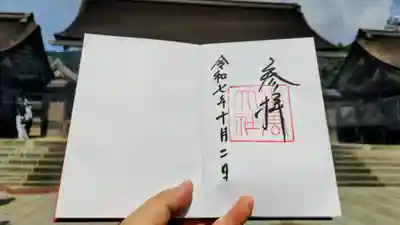 参拝
大社
令和七年十月二日